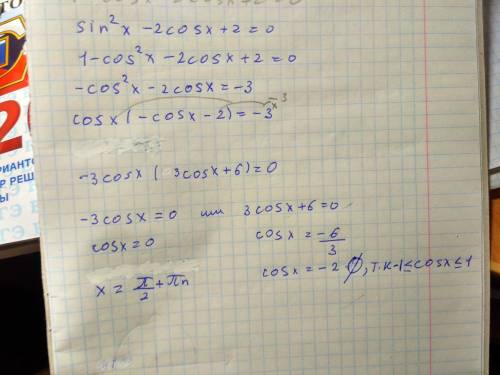 sin²x - 2cosx + 2 = 0
1 - cos²x - 2cosx + 2 = 0
-cos²x - 2cosx = -3
cosx (-cosx - 2) = -3
-3cosx ( 3cosx + 6) = 0
-3cosx = 0 или 3cosx + 6 = 0
cosx = 0 cosx = -6/3
x = π/2 + πn cosx = -2 ∅, т.к -1 ≤ cosx ≤ 1